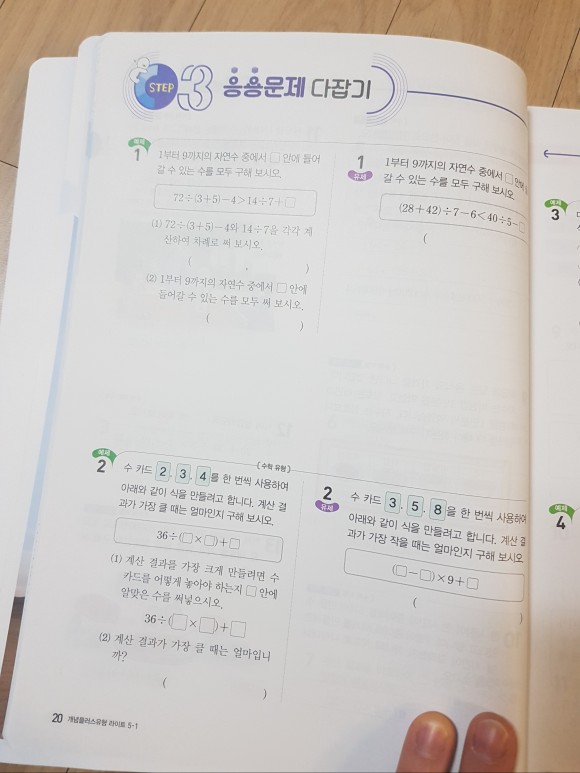 STEP 3 응용문제 다잡기
예제
1
1부터 9까지의 자연수 중에서 □ 안에 들어
갈 수 있는 수를 모두 구해 보시오.
72÷(3+5)-4>14÷7+□
(1) 72÷(3+5)-4와 14÷7을 각각 계
산하여 차례로 써 보시오.
( )
(2) 1부터 9까지의 자연수 중에서 □ 안에
들어갈 수 있는 수를 모두 써 보시오.
( )
1
유제
1부터 9까지의 자연수 중에서 □ 안에
갈 수 있는 수를 모두 구해 보시오.
(28+42)÷7-6<40÷5-□
(
예제
2
[수학 유형]
수 카드 2, 3, 4를 한 번씩 사용하여
아래와 같이 식을 만들려고 합니다. 계산 결
과가 가장 클 때는 얼마인지 구해 보시오.
36÷(□×□)+□
(1) 계산 결과를 가장 크게 만들려면 수
카드를 어떻게 놓아야 하는지 □ 안에
알맞은 수를 써넣으시오.
36÷(□×□)+□
(2) 계산 결과가 가장 클 때는 얼마입니
까?
( )
2
유제
수 카드 3, 5, 8을 한 번씩 사용하여
아래와 같이 식을 만들려고 합니다. 계산 결
과가 가장 작을 때는 얼마인지 구해 보시오
(□-□)×9+□
( )
예제
3
예제
4
20 개념플러스유형 라이트 5-1